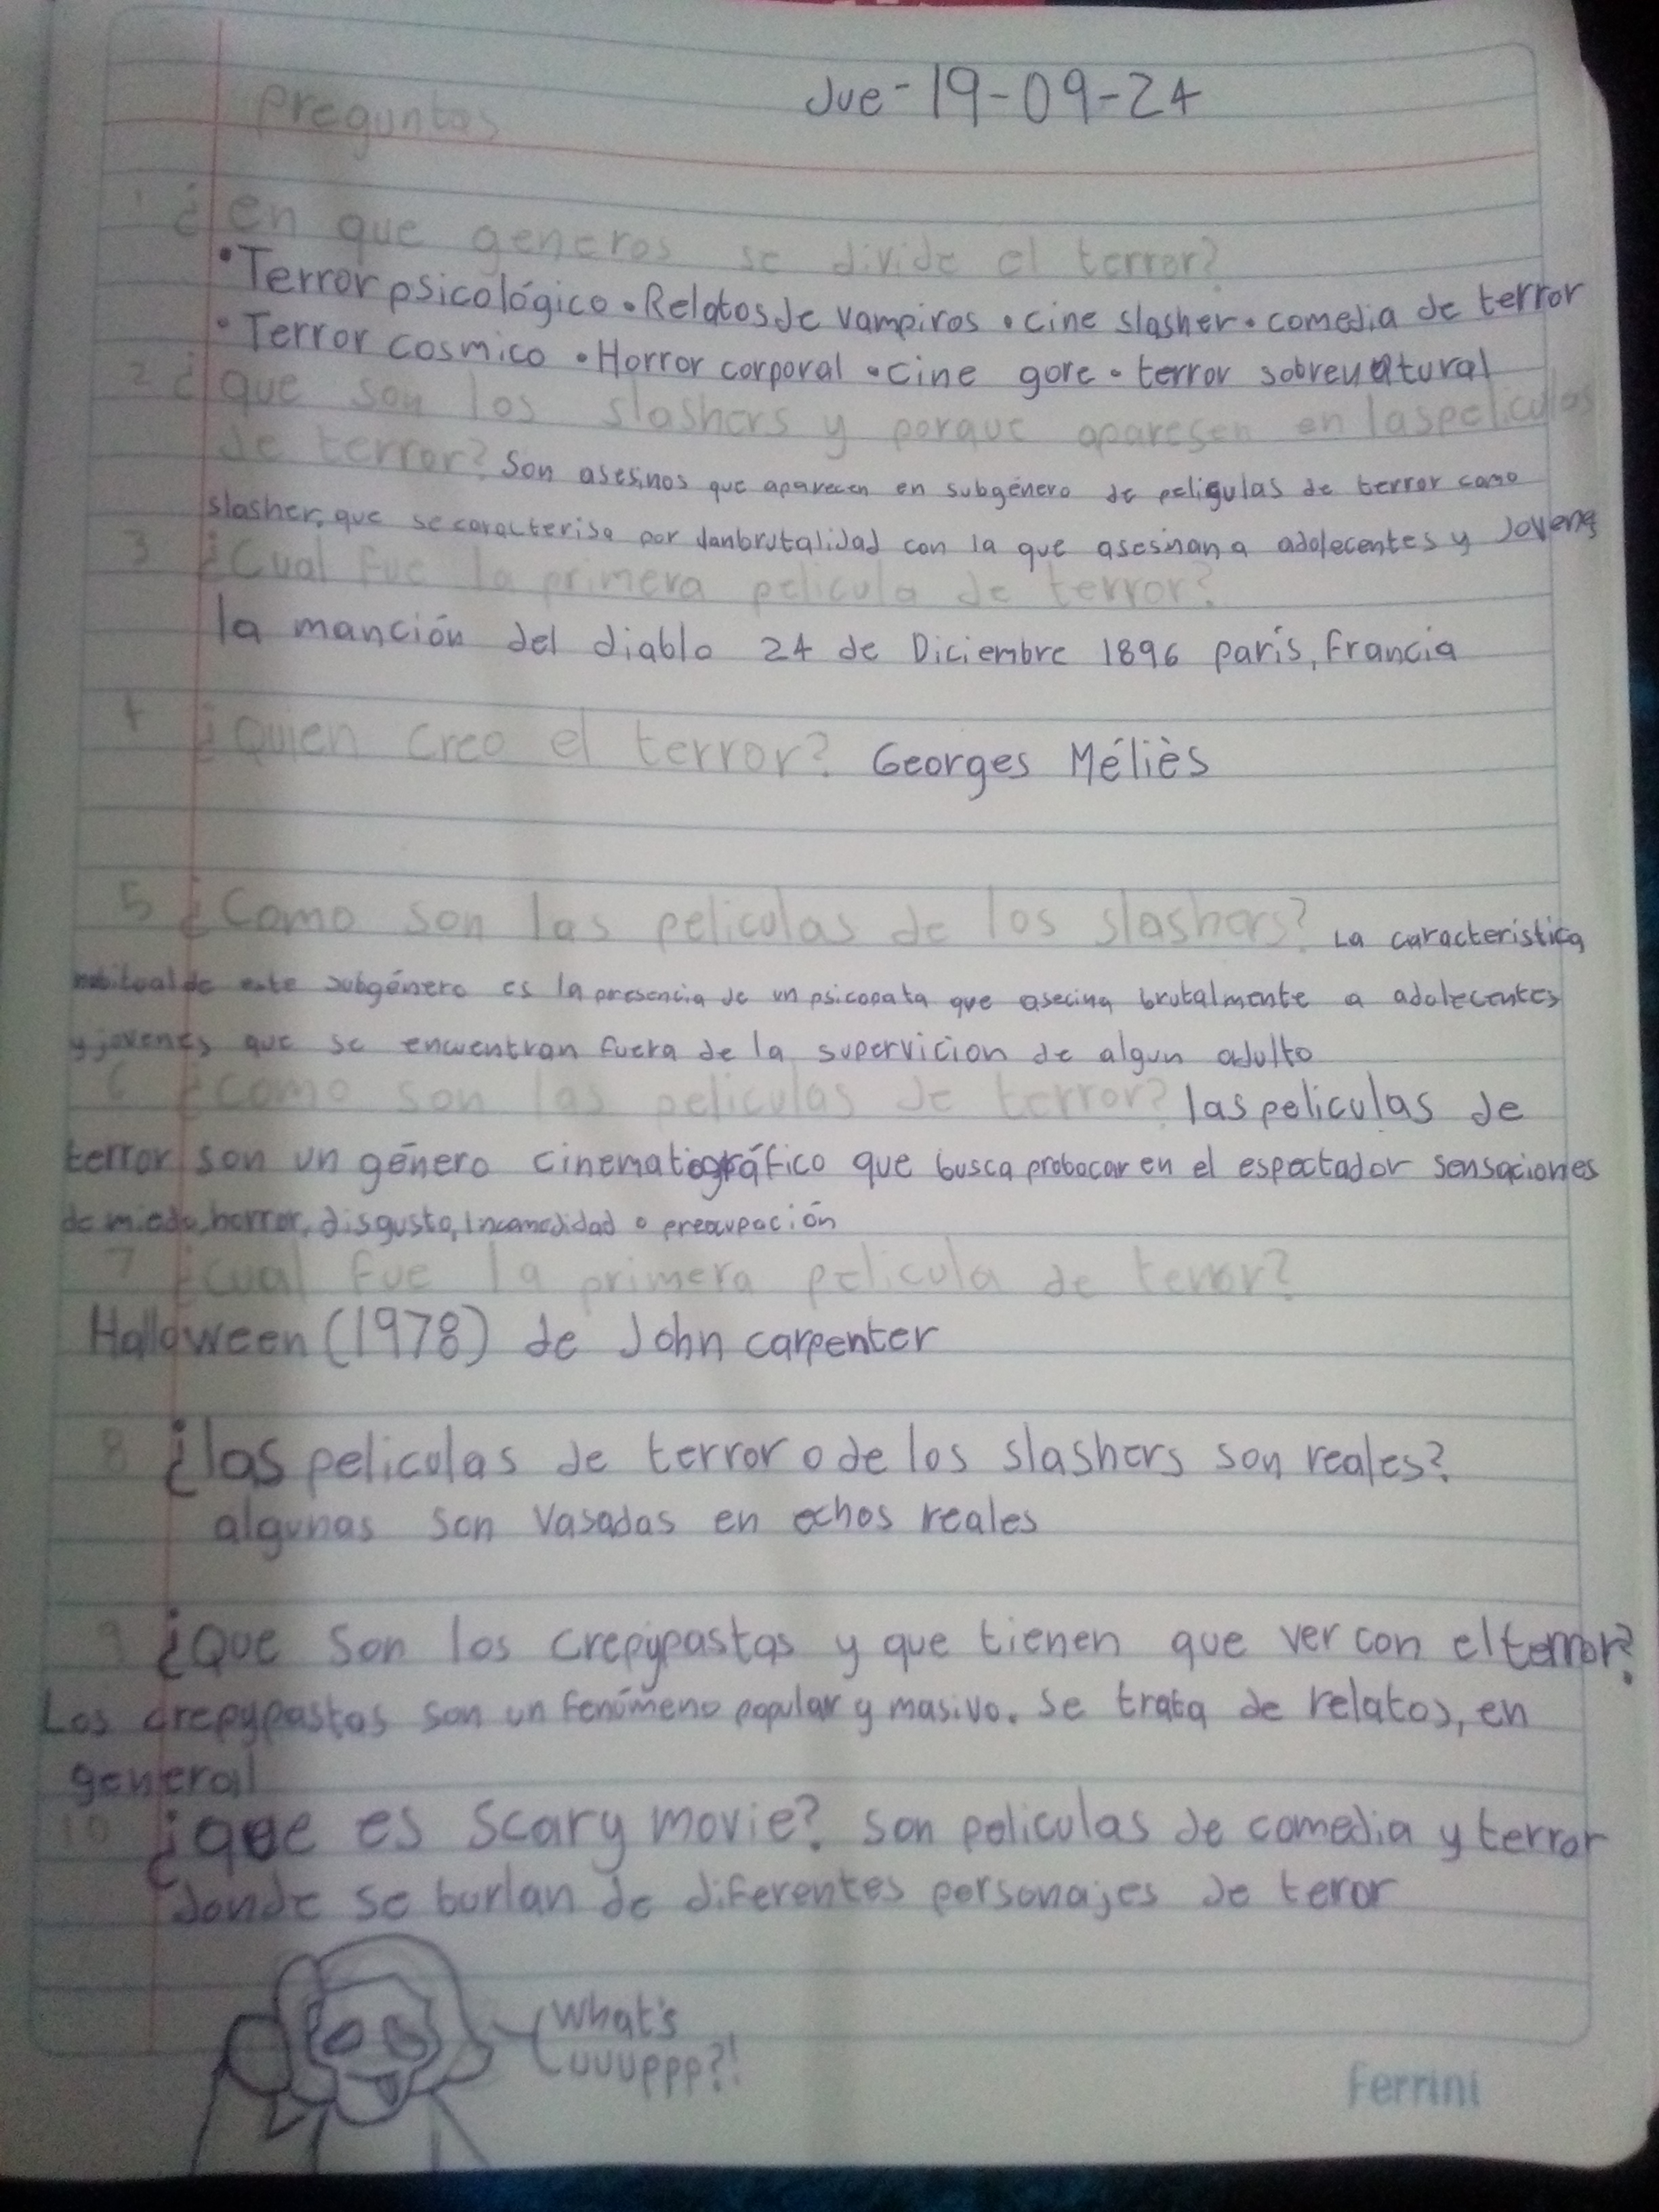 Jue-19-09-24
preguntas
1 ¿en que generos se divide el terror?
•Terror psicológico •Relatos de vampiros •cine slasher •comedia de terror
•Terror cosmico •Horror corporal •cine gore •terror sobrenatural
2 ¿que son los slashers y porque aparesen en las peliculas
de terror? Son asesinos que aparecen en subgénero de peligulas de terror como
slasher, que se caracterisa por lanbrutalidad con la que asesinan a adolecentes y jovens
3 ¿Cual fue la primera pelicula de terror?
la manción del diablo 24 de Diciembre 1896 parís, Francia
4 ¿quien creo el terror? Georges Méliès
5 ¿Como son las peliculas de los slashers? La caracteristica
habitual de este subgénero es la presencia de un psicopata que asecina brutalmente a adolecentes
y jovenes que se encuentran fuera de la supervicion de algun adulto
6 ¿como son las peliculas de terror? las peliculas de
terror son un género cinematográfico que busca probocar en el espectador sensaciones
de miedo, horror, disgusto, Incomodidad o preocupación
7 ¿cual fue la primera pelicula de terror?
Halloween (1978) de John carpenter
8 ¿las peliculas de terror o de los slashers son reales?
algunas son vasadas en echos reales
9 ¿Que son los crepypastas y que tienen que ver con el terror?
Los crepypastas son un fenómeno popular y masivo. se trata de relatos, en
general
10 ¿que es Scary movie? son peliculas de comedia y terror
donde se burlan de diferentes personajes de teror
What's
uuuppp?!
Ferrini